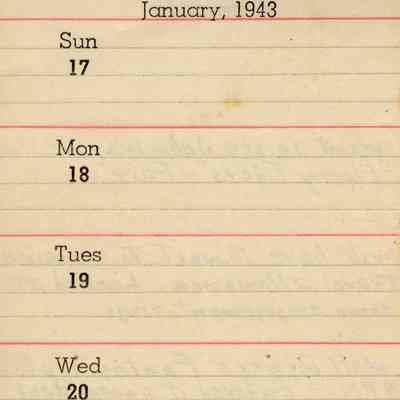 January, 1943
Sun
17
Mon
18
Tues
19
Wed
20